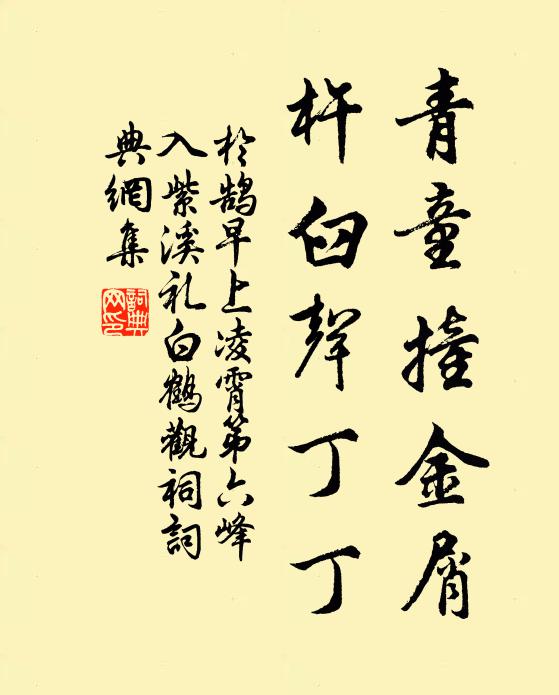 青童撞金屑
杵臼聲丁丁
於鵠早上凌霄第六峰
入紫溪礼白鶴觀祠詞
典網集
詞典
网印